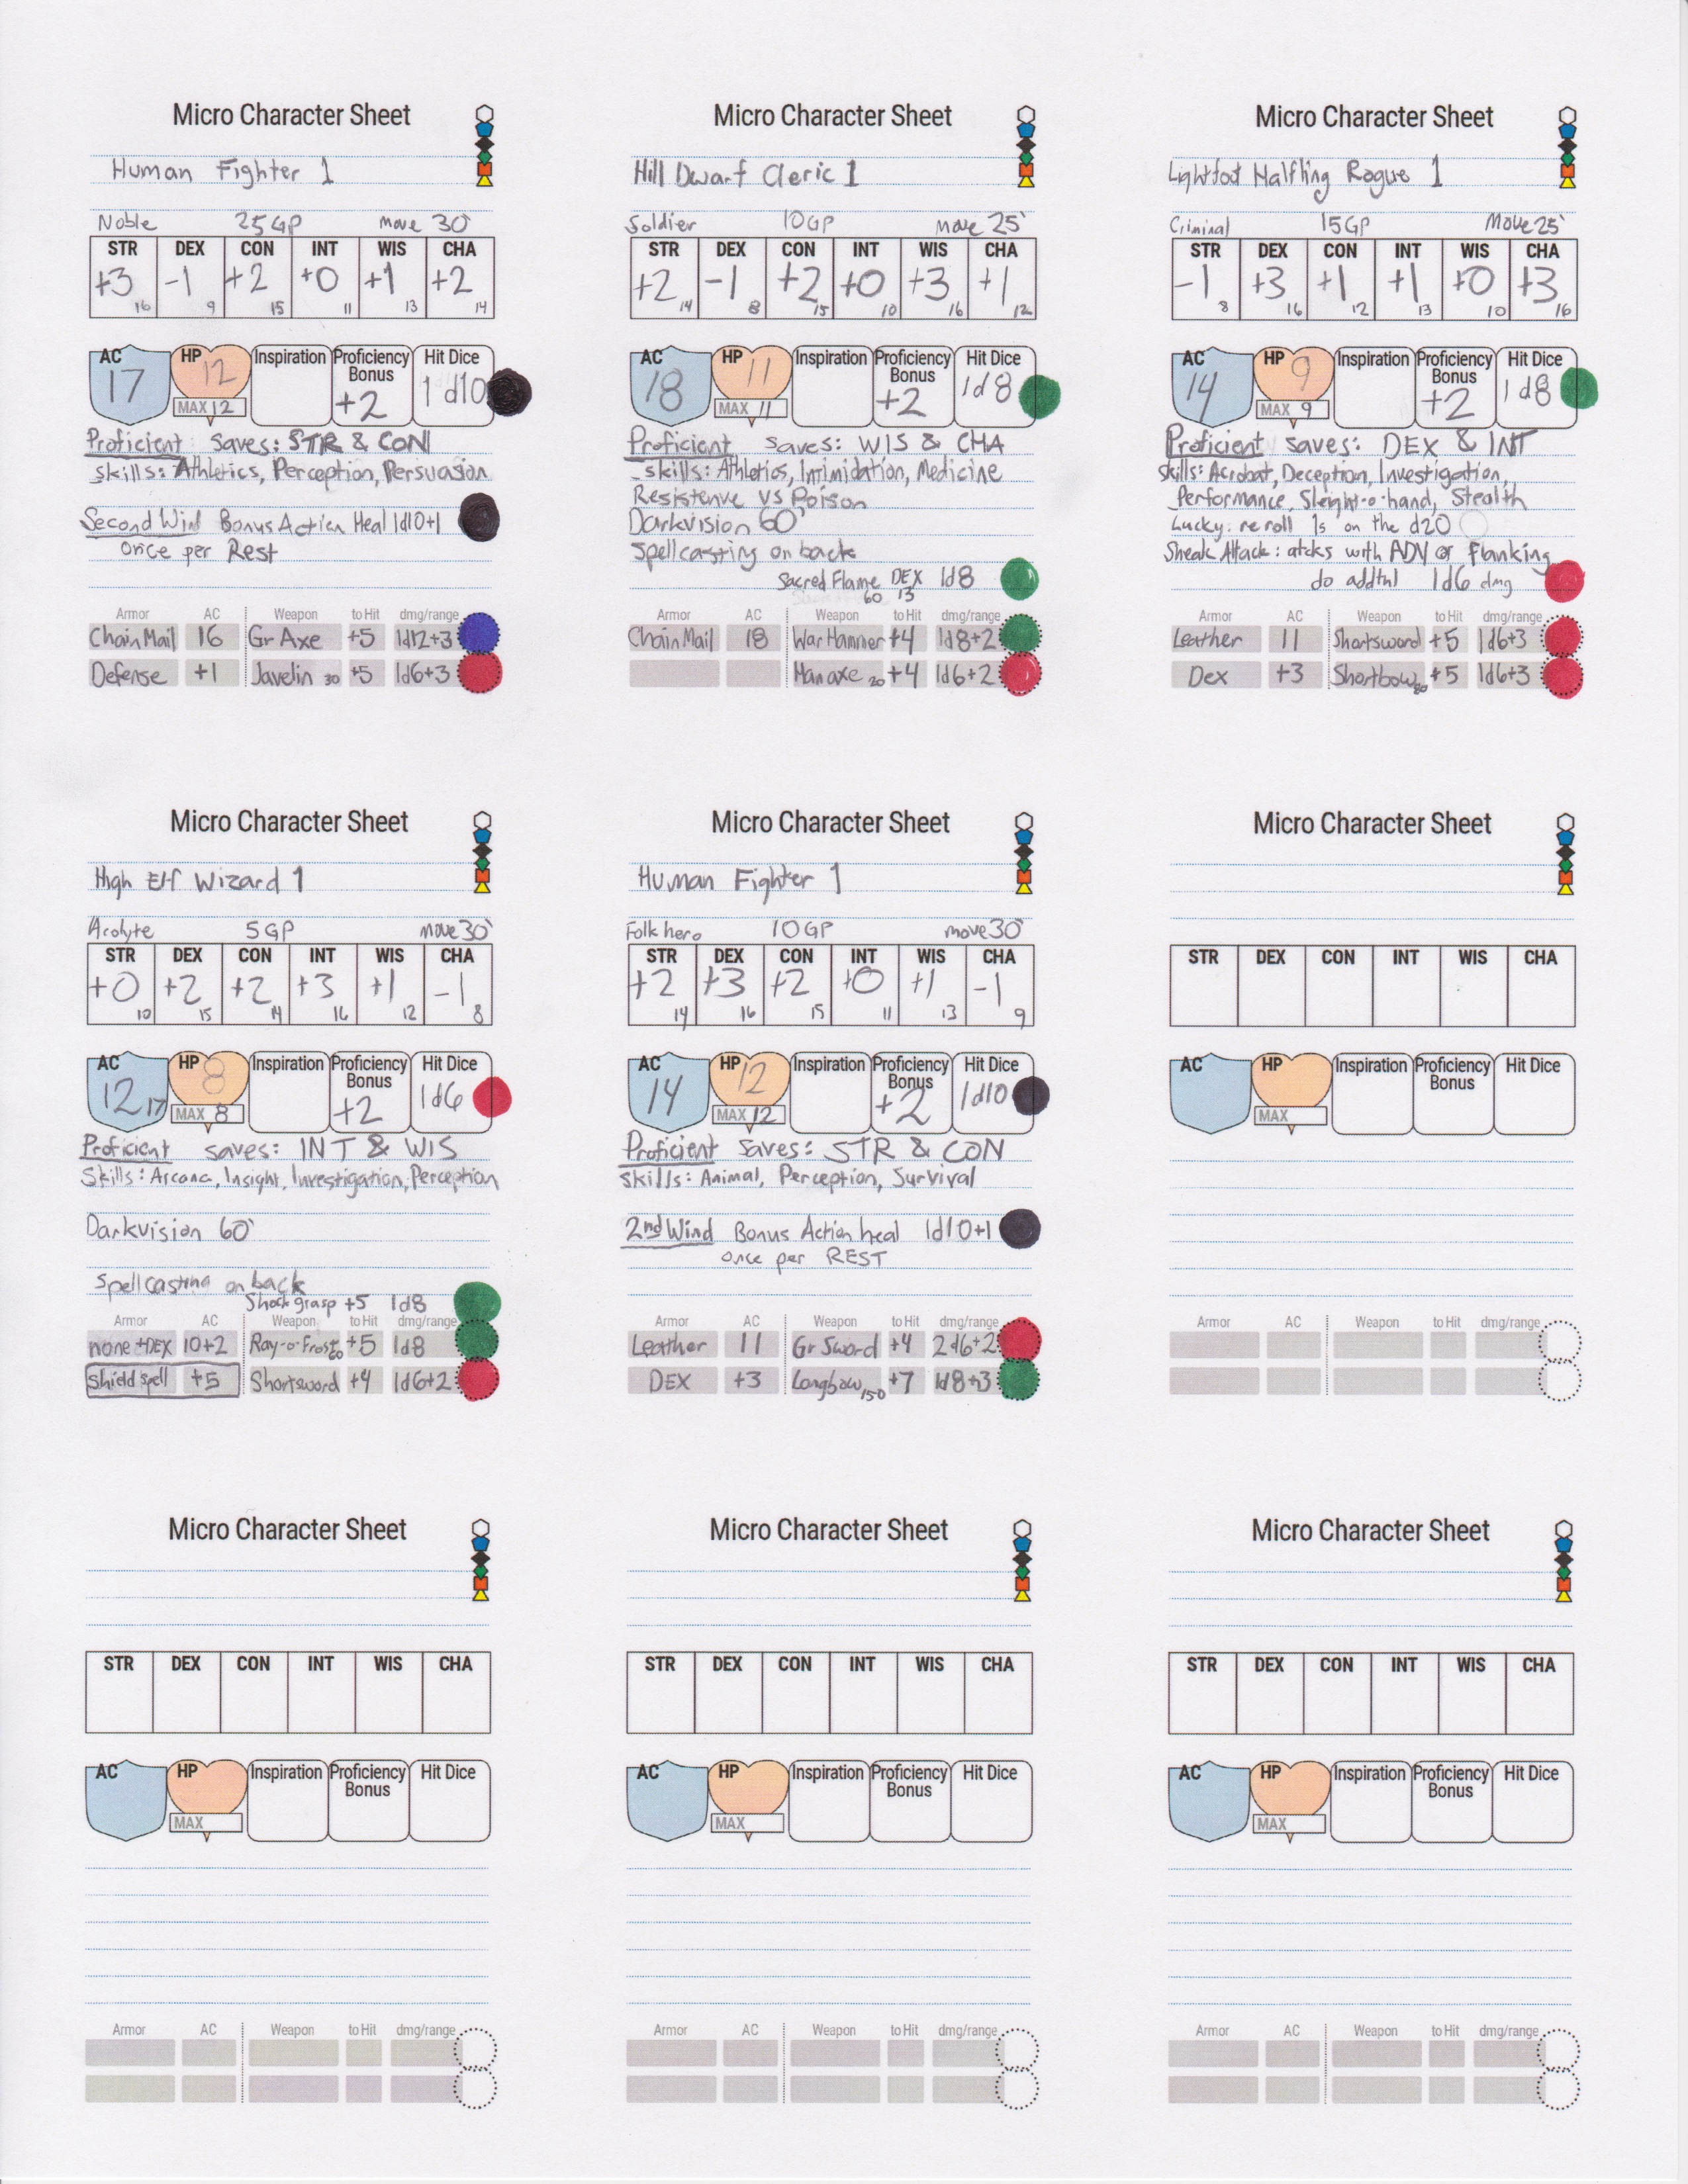 Micro Character Sheet
Human Fighter 1
Noble 25GP move 30'
STR DEX CON INT WIS CHA
+3 -1 +2 +0 +1 +2
16 9 15 11 13 14
AC HP Inspiration Proficiency Bonus Hit Dice
17 12 +2 1d10
MAX 12
Proficient saves: STR & CON
skills: Athletics, Perception, Persuasion
Second Wind Bonus Action Heal 1d10+1
once per Rest
Armor AC Weapon to Hit dmg/range
Chain Mail 16 Gr Axe +5 1d12+3
Defense +1 Javelin 30 +5 1d6+3
Micro Character Sheet
Hill Dwarf Cleric 1
Soldier 10GP move 25'
STR DEX CON INT WIS CHA
+2 -1 +2 +0 +3 +1
14 8 15 10 16 12
AC HP Inspiration Proficiency Bonus Hit Dice
18 11 +2 1d8
MAX 11
Proficient saves: WIS & CHA
skills: Athletics, Intimidation, Medicine
Resistenve VS Poison
Darkvision 60'
Spellcasting on back
Sacred Flame DEX 1d8
60 13
Armor AC Weapon to Hit dmg/range
Chain Mail 18 War Hammer +4 1d8+2
Hanaxe 20 +4 1d6+2
Micro Character Sheet
Lightfoot Halfling Rogue 1
Criminal 15GP Move 25'
STR DEX CON INT WIS CHA
-1 +3 +1 +1 +0 +3
8 16 12 13 10 16
AC HP Inspiration Proficiency Bonus Hit Dice
14 9 +2 1d8
MAX 9
Proficient saves: DEX & INT
skills: Acrobat, Deception, Investigation,
Performance, Sleight-o-hand, Stealth
Lucky: reroll 1s on the d20
Sneak Attack: atcks with ADV or flanking
do addtnl 1d6 dmg
Armor AC Weapon to Hit dmg/range
Leather 11 Shortsword +5 1d6+3
Dex +3 Shortbow 80 +5 1d6+3
Micro Character Sheet
High Elf Wizard 1
Acolyte 5GP move 30'
STR DEX CON INT WIS CHA
+0 +2 +2 +3 +1 -1
10 15 14 16 12 8
AC HP Inspiration Proficiency Bonus Hit Dice
12 17 8 +2 1d6
MAX 8
Proficient saves: INT & WIS
Skills: Arcana, Insight, Investigation, Perception
Darkvision 60'
Spellcasting on back
Shock grasp +5 1d8
Armor AC Weapon to Hit dmg/range
none +DEX 10+2 Ray-o-Frost 60 +5 1d8
Shield spell +5 Shortsword +4 1d6+2
Micro Character Sheet
Human Fighter 1
Folk hero 10GP move 30'
STR DEX CON INT WIS CHA
+2 +3 +2 +0 +1 -1
14 16 15 11 13 9
AC HP Inspiration Proficiency Bonus Hit Dice
14 12 +2 1d10
MAX 12
Proficient saves: STR & CON
skills: Animal, Perception, Survival
2nd Wind Bonus Action heal 1d10+1
once per REST
Armor AC Weapon to Hit dmg/range
Leather 11 Gr Sword +4 2d6+2
DEX +3 Longbow 150 +7 1d8+3
Micro Character Sheet
STR DEX CON INT WIS CHA
AC HP Inspiration Proficiency Bonus Hit Dice
MAX
Armor AC Weapon to Hit dmg/range
Micro Character Sheet
STR DEX CON INT WIS CHA
AC HP Inspiration Proficiency Bonus Hit Dice
MAX
Armor AC Weapon to Hit dmg/range
Micro Character Sheet
STR DEX CON INT WIS CHA
AC HP Inspiration Proficiency Bonus Hit Dice
MAX
Armor AC Weapon to Hit dmg/range
Micro Character Sheet
STR DEX CON INT WIS CHA
AC HP Inspiration Proficiency Bonus Hit Dice
MAX
Armor AC Weapon to Hit dmg/range